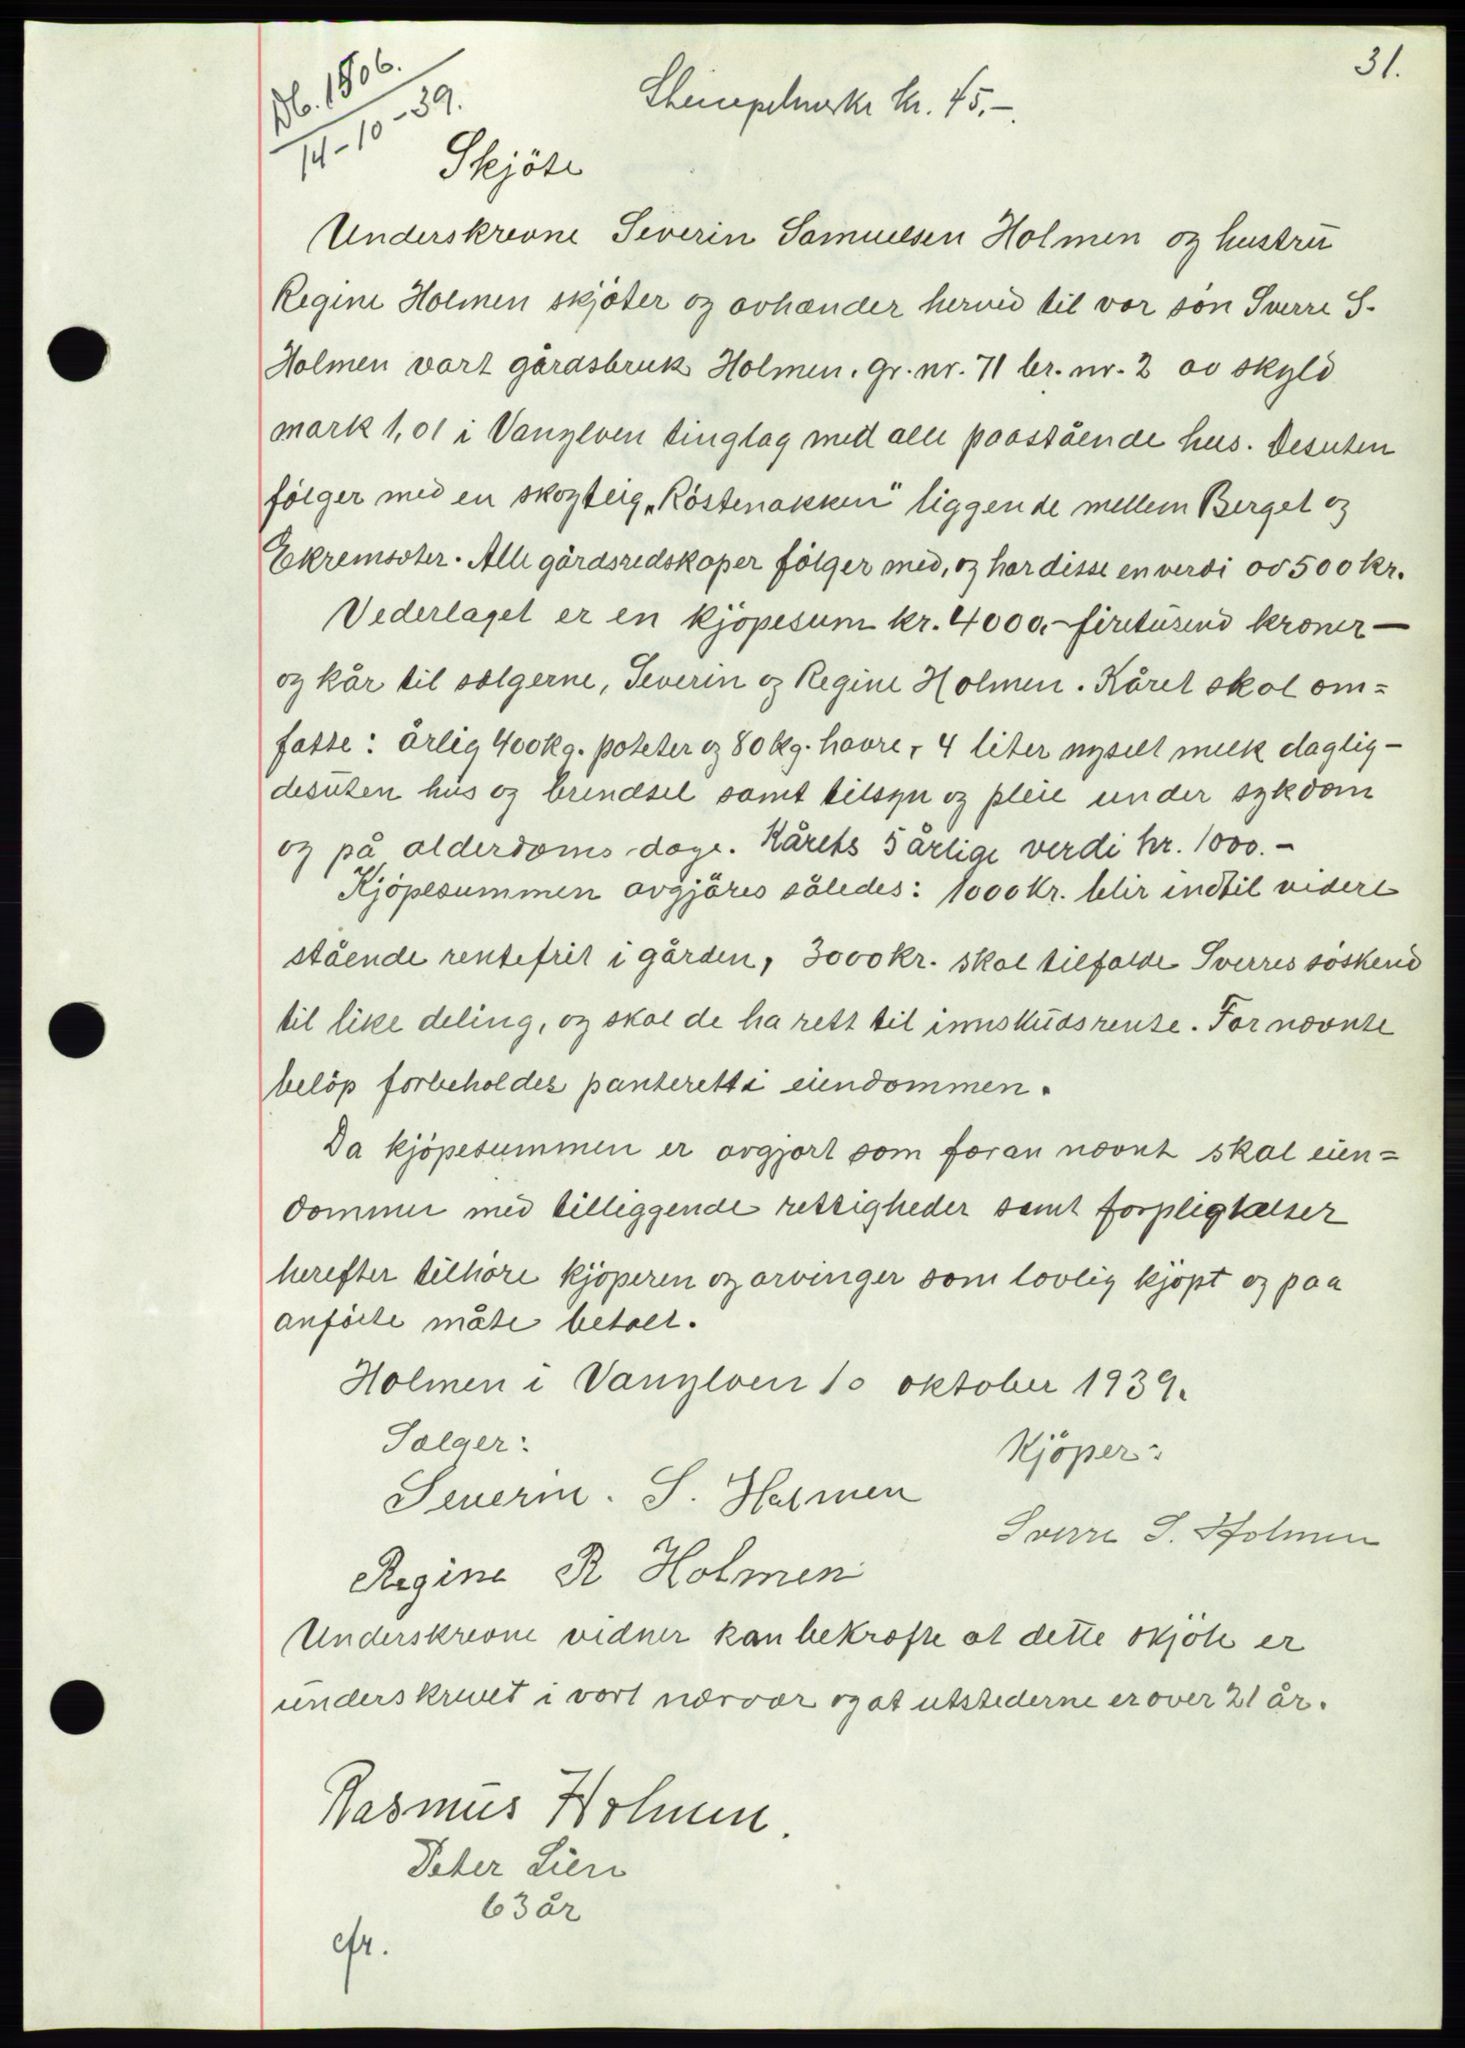 31.
Db. 1506.
14-10-39.
Stempelmerke kr. 45.-
Skjöte
Underskrevne Severin Samuelsen Holmen og hustru
Regine Holmen skjöter og avhænder herved til vor sön Sverre S.
Holmen vort gårdsbruk Holmen. gr. nr. 71 br. nr. 2 av skyld
mark 1,01 i Vanylven tinglag med alle paastående hus. Desuten
fölger med en skogteig „Röstenakken" liggende mellem Berget og
Ekremsæter. Alle gårdsredskaper fölger med, og har disse en verdi av 500 kr.
Vederlaget er en kjöpesum kr. 4000,- firetusend kroner —
og kår til sælgerne, Severin og Regine Holmen. Kåret skal om=
fatte: årlig 400 kg. poteter og 80 kg. havre, 4 liter nysilt melk daglig -
desuten hus og brendsel samt tilsyn og pleie under sykdom
og på alderdoms dage. Kårets 5 årlige verdi kr. 1000.-
Kjöpesummen avgjöres således: 1000 kr. blir indtil videre
stående rentefrit i gården, 3000 kr. skal tilfalde Sverres söskend
til like deling, og skal de ha rett til innskudsrente. For nævnte
belöp forbeholdes panterett i eiendommen.
Da kjöpesummen er avgjort som foran nævnt skal eien=
dommen med tilliggende rettigheder samt forpligtelser
herefter tilhöre kjöperen og arvinger som lovlig kjöpt og paa
anförte måte betalt.
Holmen i Vanylven 10 oktober 1939.
Sælger:
Kjöper:
Severin. S. Holmen
Sverre S. Holmen
Regine R Holmen
Underskrevne vidner kan bekræfte at dette skjöte er
underskrevet i vort nærvær og at utstederne er over 21 år.
Rasmus Holmen.
Peter Lien
63 år
cfr.